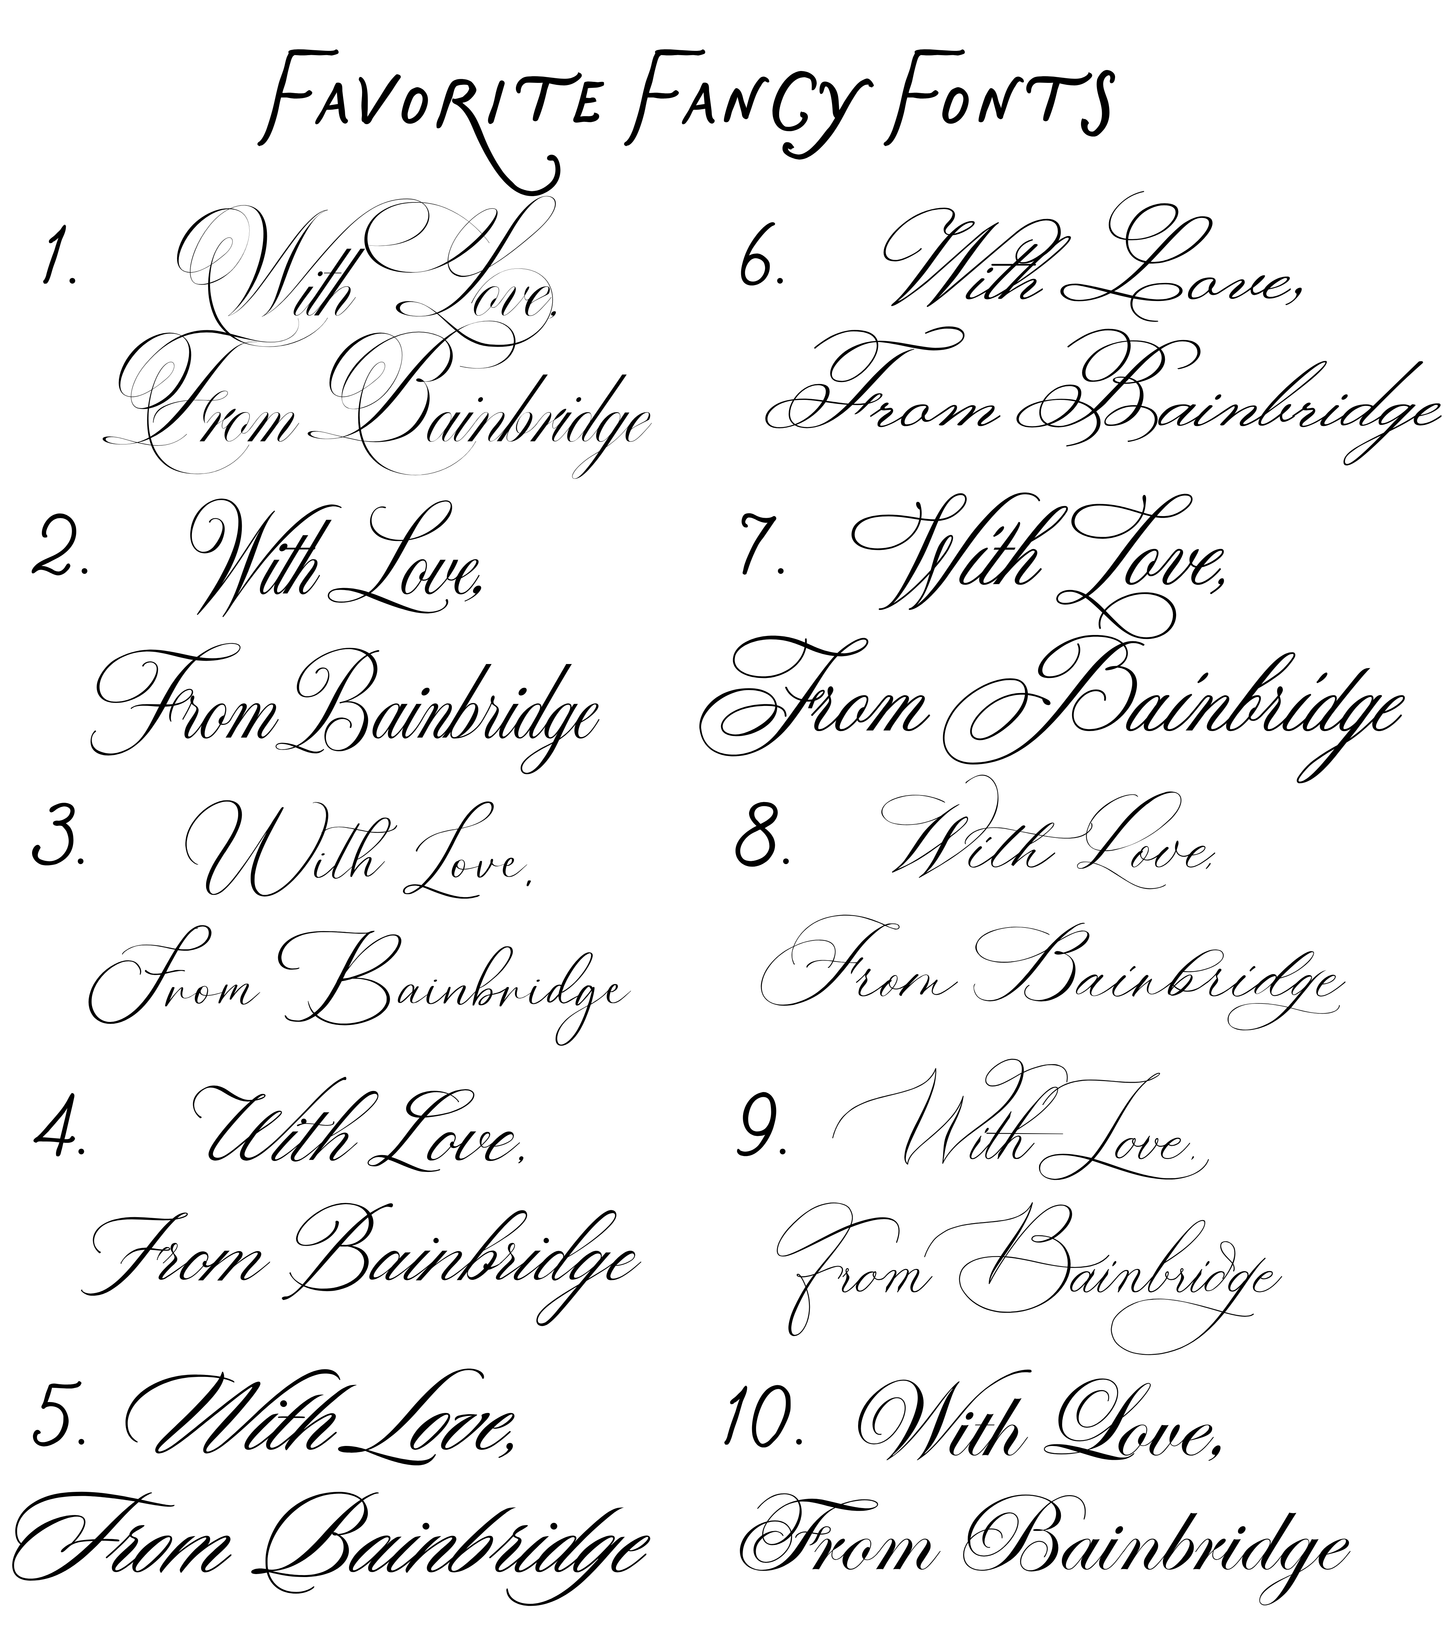 FAVORITE FANCY FONTS
1. With Love,
From Bainbridge
2. With Love,
From Bainbridge
3. With Love,
From Bainbridge
4. With Love,
From Bainbridge
5. With Love,
From Bainbridge
6. With Love,
From Bainbridge
7. With Love,
From Bainbridge
8. With Love,
From Bainbridge
9. With Love,
From Bainbridge
10. With Love,
From Bainbridge